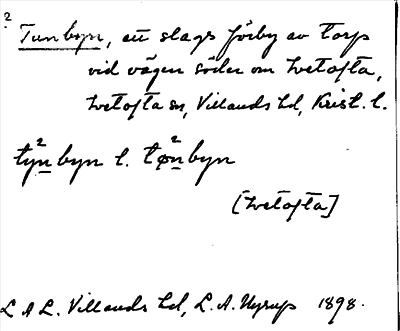 2 Tunbyn, ett slags förby av torp
vid vägen söder om Ivetofta,
Ivetofta sn, Villands hd, Krist. l.
ty²n byn l. tø²n byn
[Ivetofta]
L A L. Villands hd, L. A. Nyrup 1898.